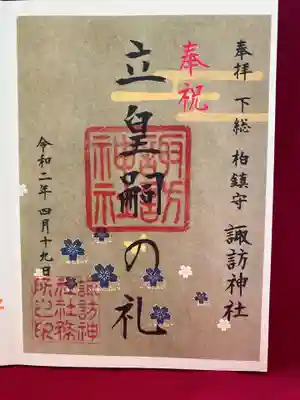 奉拝 下総 柏鎮守 諏訪神社
奉祝
立皇嗣の礼
諏訪神社
令和二年四月十九日
諏訪神
社社務
所之印